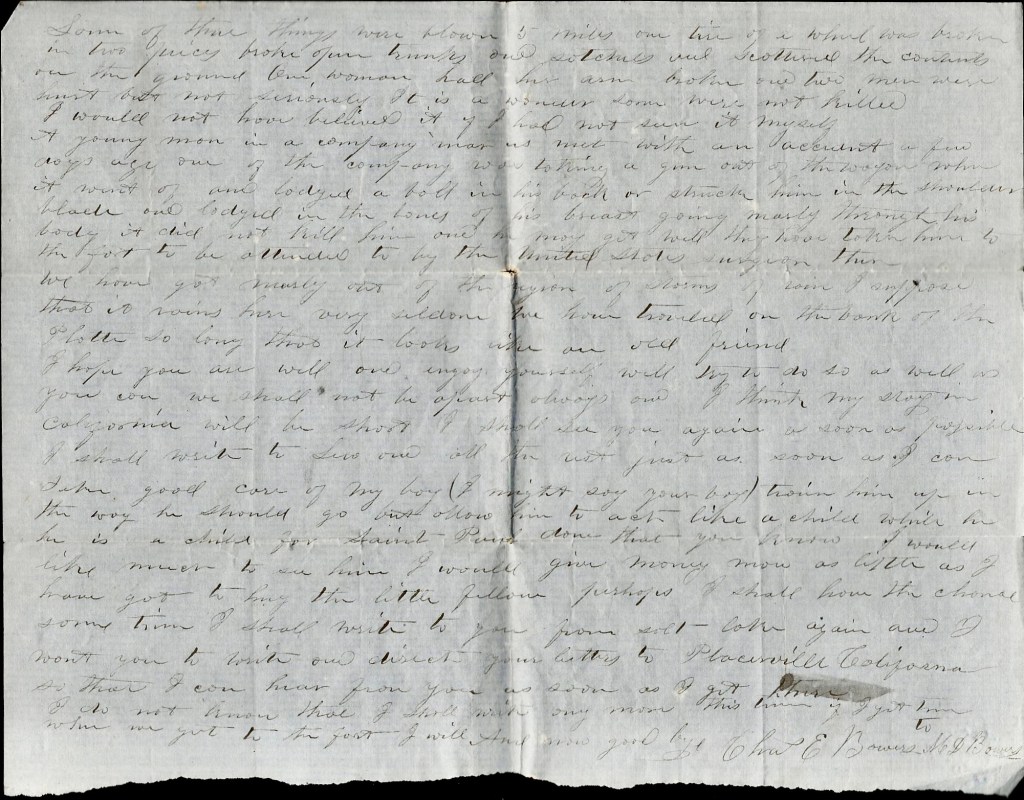 Some of there things were blown 5 miles one tire of a wheel was broken
in two pieces broke open trunks and sotchels and scottered the contents
on the ground One woman hall her arm broke one two men were
hurt but not seriously It is a wonder some were not killed
I would not have believed it if I had not seen it myself
A young man in a company near us met with an accident a few
days ago one of the company was taking a gun out of the wagon when
it went of and lodged a ball in his back or struck him in the shoulder
blade and lodged in the bones of his breast going nearly through his
body it did not kill him and he may get well they have taken him to
the fort to be attended to by the United States surgeon there
We have got nearly out of the region of storms of rain I suppose
that it rains here very seldom We have traveled on the bank of the
Platte so long that it looks like an old friend
I hope you are well and enjoy yourself well try to do so as well as
you can we shall not be apart always and I think my stay in
California will be short I shall see you again as soon as possible
I shall write to and all the rest just as soon as I can
Take good care of my boy (I might say your boy) train him up in
the way he should go but allow him to act like a child while he
he is a child for Saint Paul done that you know I would
like much to see him I would give money now as little as I
have got to hug the little fellow perhaps I shall have the chance
some time I shall write to you from solt lake again and I
want you to write and direct your letters to Placerville California
so that I can hear from you as soon as I get there
I do not know that I shall write any more this time if I get time
when we get to the fort I will And now good by Chas E Bowers to M D Bowers